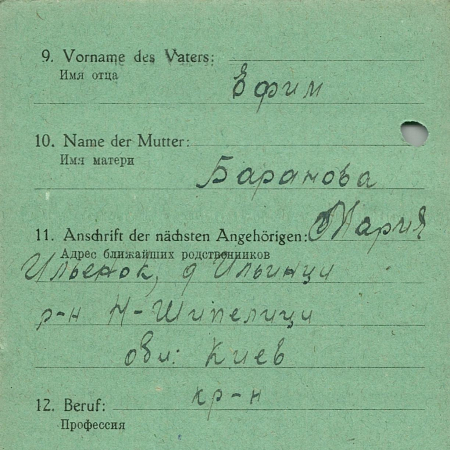 9. Vorname des Vaters:
Имя отца
Ефим
10. Name der Mutter:
Имя матери
Баранова
11. Anschrift der nächsten Angehörigen: Мария
Адрес ближайших родственников
Ильенок, д Ильинци
р-н Н-Шипелици
обл: Киев
12. Beruf: кр-н
Профессия